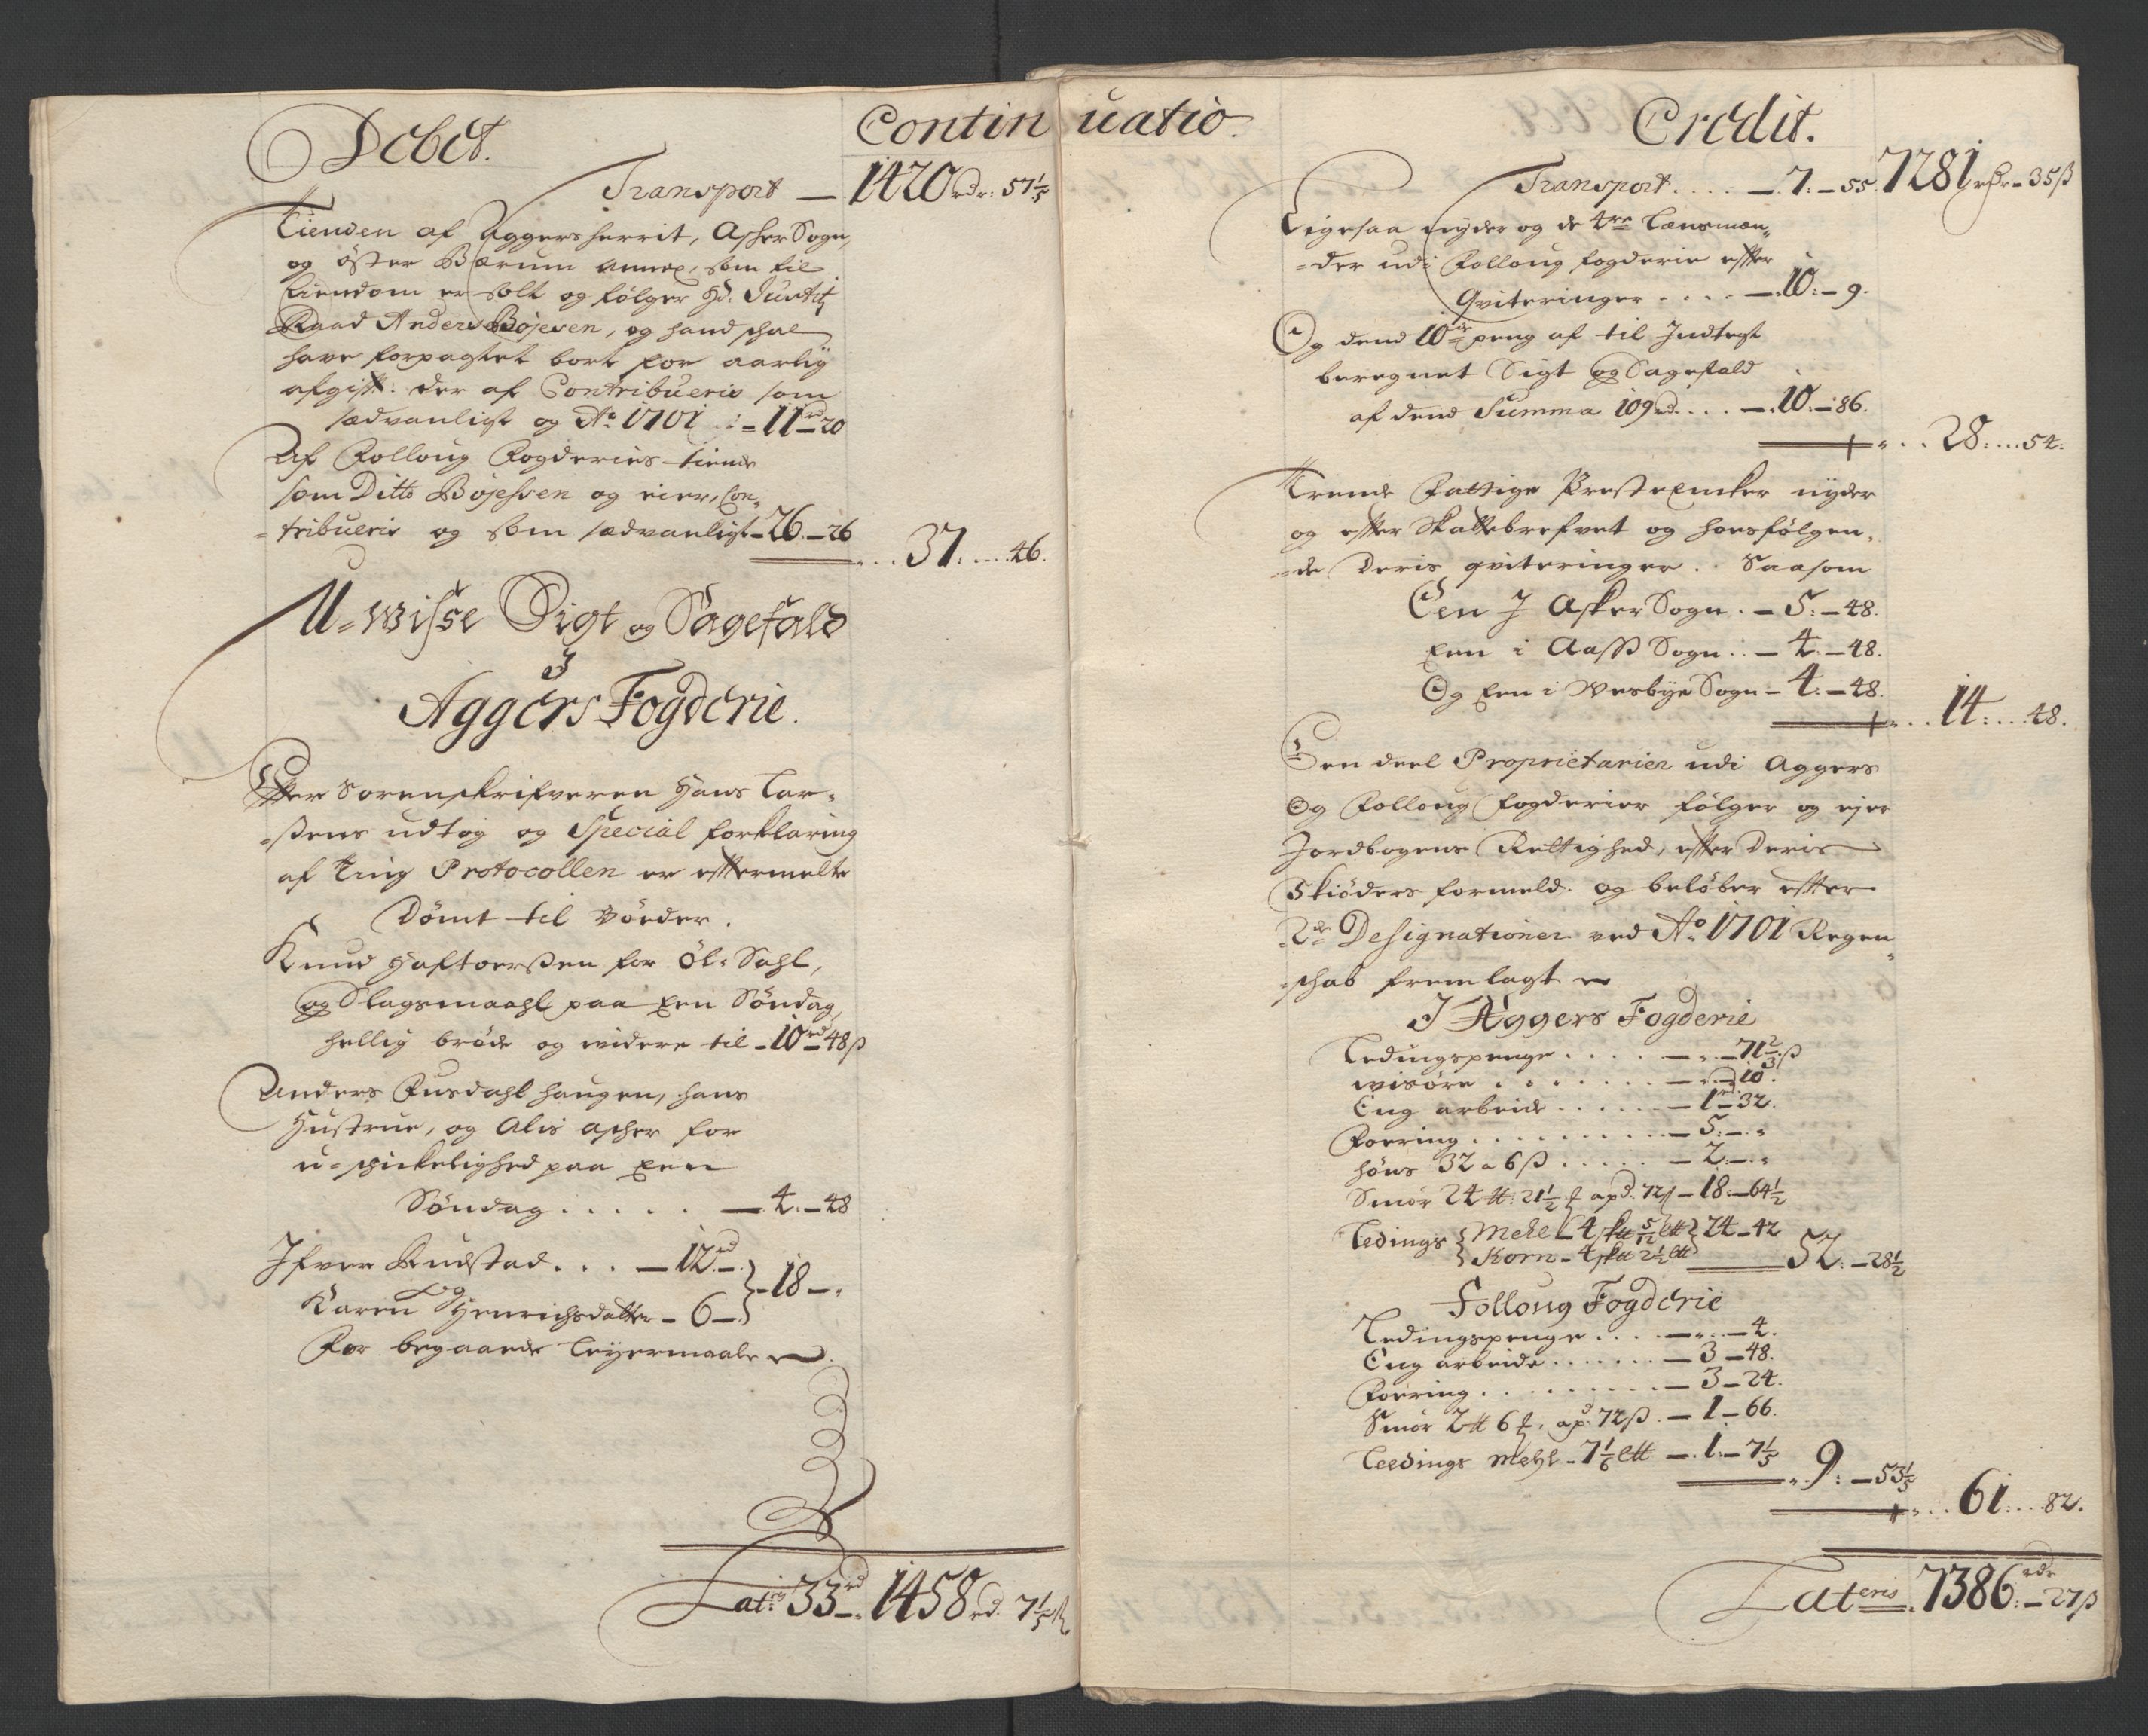 Debet.
Continuatio.
Transport — 1420 rdr: 57 1/5
Tienden af Aggersherrit, Asker Sogn,
og öster Bærum annex, som til
Eiendom er solt og følger Hr. Justitz
Raad Anders Bojesen, og hand schal
have forpagtet bort for aarlig
afgift: der af Contribueris som
sædvanligt og Ao. 1701 . : - 11 rd 20
Af Folloug Fogderies tiende
som Ditto Bojesen og eier, Con-
-tribueris og som sædvanligt - 26 - 26
... 37: ... 46.
U-wisse Sigt og Sagefald
I
Aggers Fogderie.
Effter Sorenskrifveren Hans Lar-
-sens udtog og Special forklaring
af Ting Protocollen er effter melte
Dömt til Böeder.
Knud Haftorssen for Öl-Sahl,
og Slagsmaahl paa een Söndag,
hellig bröde og videre til - 10 rd 48 ß
Anders Rusdahl haugen, hans
Hustrue, og Alis Asker for
u-schickelighed paa een
Söndag . . . . . — 4. — 48
Ifver Rudstad . . . — 12 rd —
og
} - 18 — "
Karen Henrichsdatter - 6 —
For begaaende Leyermaale
Lat: 33 rd — 1458 rd. 7 1/5 ß
Credit.
Transport . . . . — 7. — 55. 7281 rdr - 35 ß
Ligesaa nyder og de 4re Lænsmæn-
-der udi Folloug fogderie effter
Qviteringer . . . . — 10. — 9.
Og dend 10de peng af til Indtegt
beregnet Sigt og Sagefald
af dend Summa 109 rd. . . . — 10. — 86.
. . 28: ... 54.
Trende Fattige Prest Encker nyder
og effter Skattebrefvet og hoesfölgen-
-de Deris qviteringer. Saasom
Een I Asker Sogn. — 5: — 48.
Een i Aass Sogn: — 4. — 48.
Og Een i Wesbye Sogn — 4: — 48.
. . 14: ... 48.
Een deel Proprietarier udi Aggers
Og Folloug fogderier fölger og ejer
Jordbogens Rettighed, effter Deris
Skiöders formeld. og belöber effter
2de Designationer ved Ao. 1701 Regen-
-schab fremlagt
I Aggers Fogderie
Ledingspenge . . . . — " — 71 2/3 ß
wisöre . . . . . . . — " — 10.
Eng arbeide . . . . . — 1 rd 32.
Foering . . . . . . . . . — 5: — "
höns 32 a 6 ß . . . . . — 2: — "
Smör 24 tt: 21 1/2 ... a pd. 72 ß — 18: — 64 1/2
Ledings { Mehl - 4 ... 5/12 ltt } 24 — 42
{ Korn - 4 ... 2 1/2 ltt
52: — 28 1/2
Folloug Fogderie
Ledingspenge . . . . — " — 4.
Eng arbeide . . . . . . . — 3 — 48.
Foering . . . . . . . . . — 3 — 24.
Smör 2 tt 6 ... a pd. 72 ß. — 1 — 66.
Leedings Mehl - 7 1/6 ltt — 1: — 7 1/5
9: — 53 1/5
. . 61: ... 82.
Lateris. 7386 rdr: — 27 ß